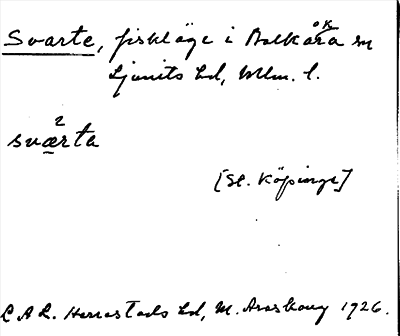 Svarte, fiskläge i Balkåkra sn
Ljunits hd, Mlm. l.
2
sværta
[St. Köpinge]
R A L. Herrestads hd, M. Areskoug 1926.